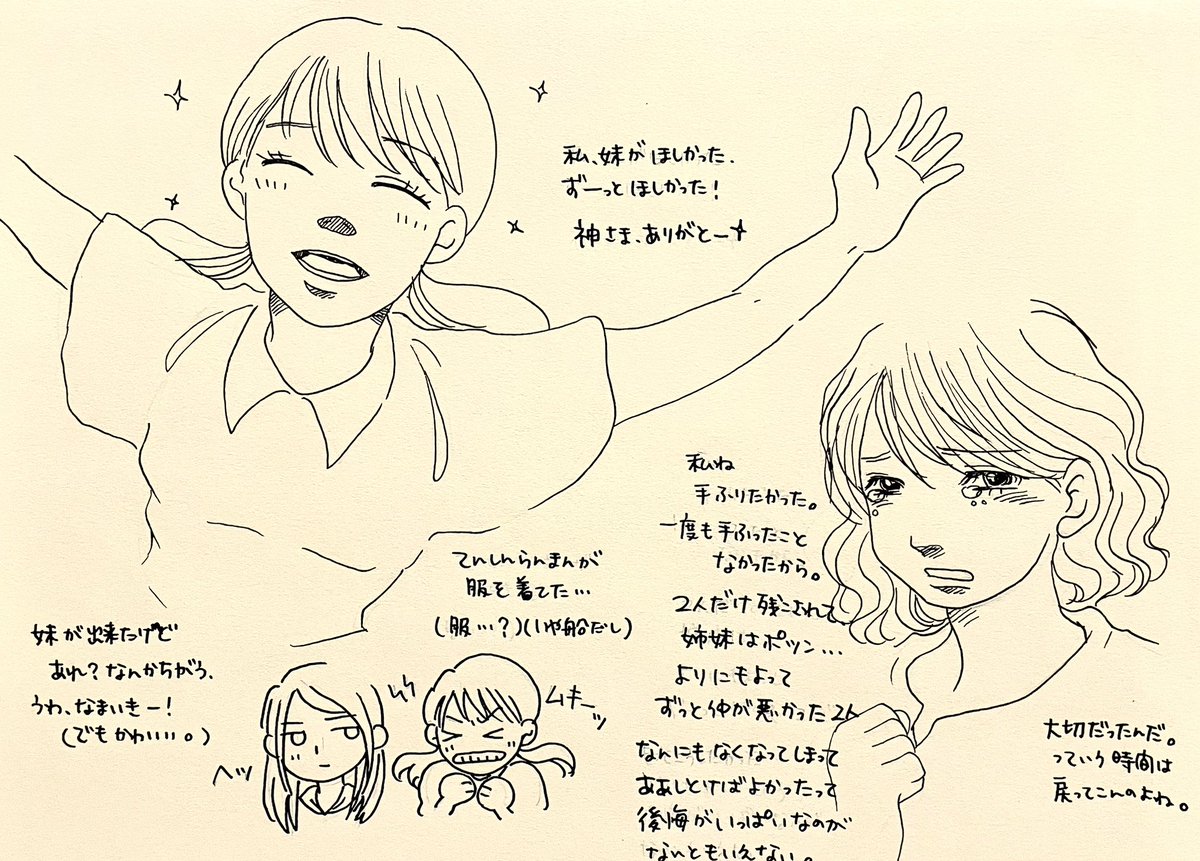 私、妹がほしかった、
ずーっとほしかった!
神さま、ありがとー
私ね
手ふりたかった。
一度も手ふったこと
なかったから。
2人だけ残されて
姉妹はポツン…
よりにもよって
ずっと仲が悪かった2人
なんにもなくなってしまって
ああしとけばよかったって
後悔がいっぱいなのが
ないともいえない。
てんしんらんまんが
服を着てた…
(服…?)(いや船だし)
妹が出来たけど
あれ?なんかちがう、
うわ、なまいきー!
(でもかわいい。)
ヘッ
ムキーッ
大切だったんだ。
っていう時間は
戻ってこんのよね。